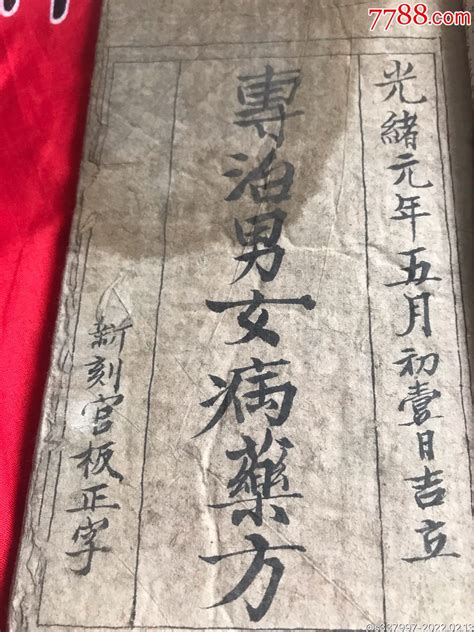 7788.com
光緒元年五月初壹日吉立
專治男女病藥方
新刻官板正字
@s337997-2022.02.13